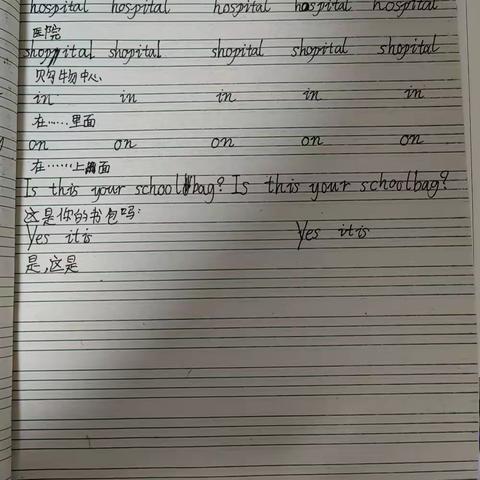 hospital hospital hospital hospital hospital
医院
shoppital shopital shopital shopital shopital
购物中心
in in in in in
在……里面
on on on on on
在……上面
Is this your schoolbag? Is this your schoolbag?
这是你的书包吗?
Yes it is Yes it is
是,这是